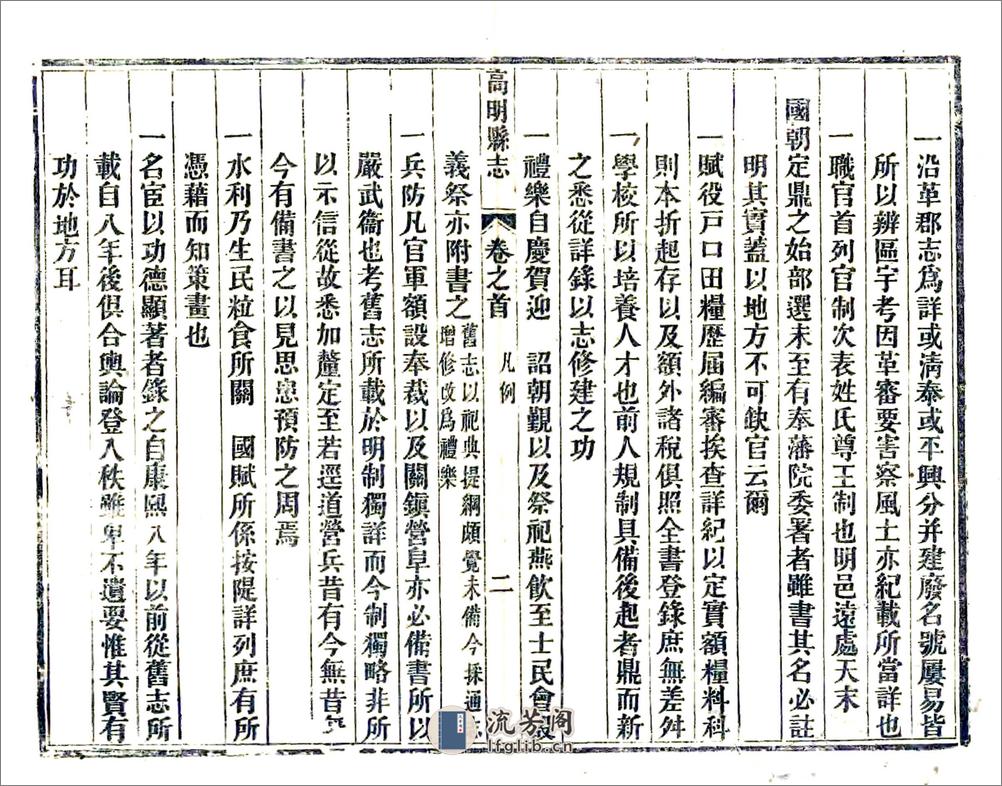 一沿革郡志爲詳或清泰或平興分并建廢名號屢易皆
所以辨區宇考因革審要害察風土亦紀載所當詳也
一職官首列官制次表姓氏尊王制也明邑遠處天末
國朝定鼎之始部選未至有奉藩院委署者雖書其名必註
明其實蓋以地方不可缺官云爾
一賦役戸口田糧歷屆編審挨查詳紀以定實額糧料科
則本折起存以及額外諸稅俱照全書登錄庶無差舛
一學校所以培養人才也前人規制具備後起者鼎而新
之悉從詳錄以志修建之功
一禮樂自慶賀迎 詔朝覲以及祭祀燕飲至士民會
高明縣志 卷之首 凡例 二
義祭亦附書之舊志以祀典提綱頗覺未備今採通志
增修改爲禮樂
一兵防凡官軍額設奉裁以及關鎮營阜亦必備書所以
嚴武衞也考舊志所載於明制獨詳而今制獨略非所
以示信從故悉加釐定至若逕道營兵昔有今無昔
今有備書之以見思患預防之周焉
一水利乃生民粒食所關 國賦所係按隄詳列庶有所
憑藉而知策畫也
一名宦以功德顯著者錄之自康熙八年以前從舊志所
載自八年後俱合輿論登入秩雖卑不遺要惟其賢有
功於地方耳
流芳阁
lfglib.cn